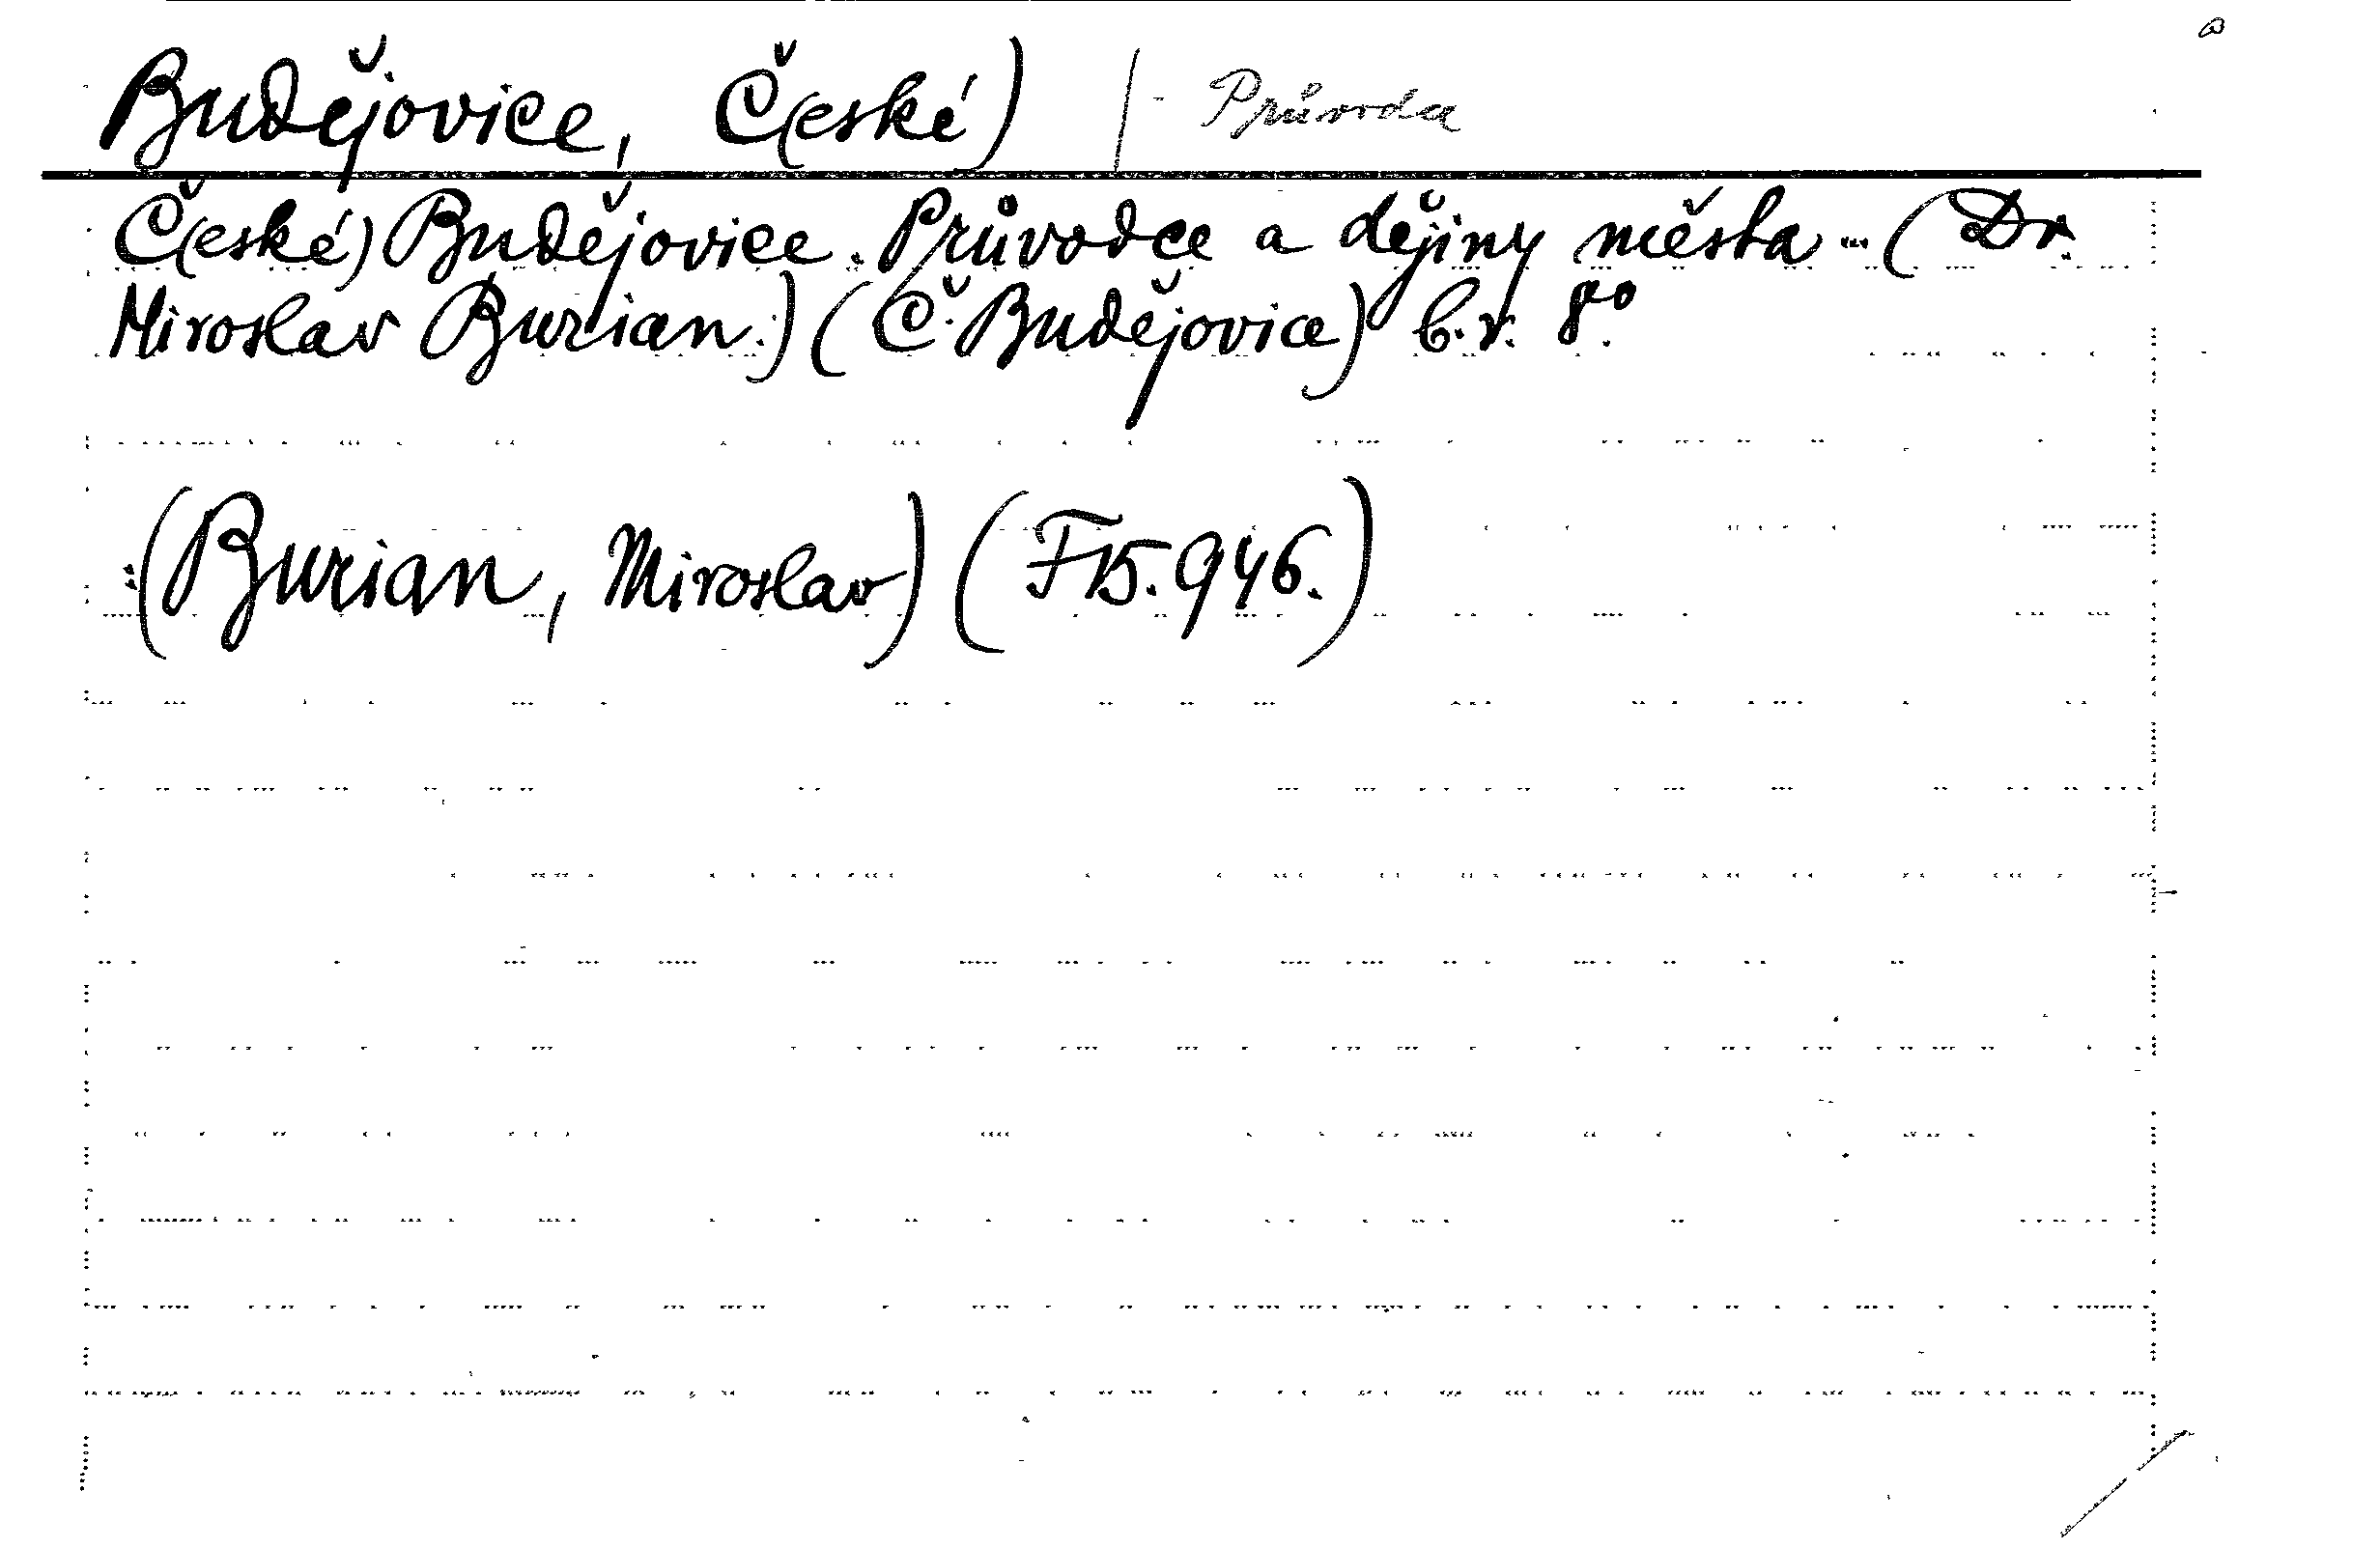 Budějovice, Č(eské) | - Průvodce
Č(eské) Budějovice. Průvodce a dějiny města ... (Dr.
Miroslav Burian.) (Č. Budějovice) b.r. 8o.
:(Burian, Miroslav) (F15.946.)